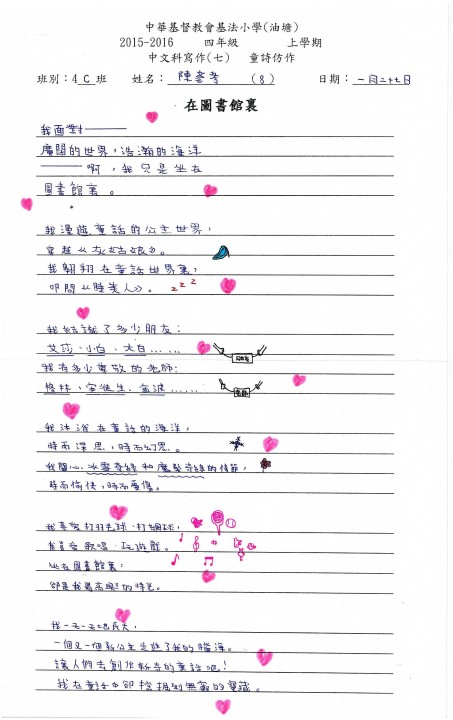 中華基督教會基法小學(油塘)
2015-2016 四年級 上學期
中文科寫作(七) 童詩仿作
班別：4C班 姓名：陳彥孝 (8) 日期：一月二十七日
在圖書館裏
我面對———
廣闊的世界，浩瀚的海洋
———啊，我只是坐在
圖書館裏。
我漫遊童話的公主世界，
穿越《灰姑娘》。
我翱翔在童話世界裏，
叩問《睡美人》。
z z z
我結識了多少朋友：
艾莎、小白、大白……
我有多少尊敬的老師：
格林、安徒生、金波……
我沐浴在童話的海洋，
時而深思，時而幻思。
我關心冰雪奇緣和魔髮奇緣的情節，
時而愉快，時而憂傷。
我喜愛打羽毛球、打網球，
我喜愛歌唱、玩遊戲。
坐在圖書館裏，
卻是我最高興的時光。
我一天一天地長大，
一個又一個新公主走進了我的腦海。
讓人們去創作新奇的童話吧！
我在童話中卻挖掘到無窮的寶藏。